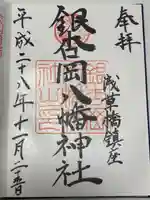 奉拝
浅草橋鎮座
銀杏岡八幡神社
平成二十八年十一月二十五日